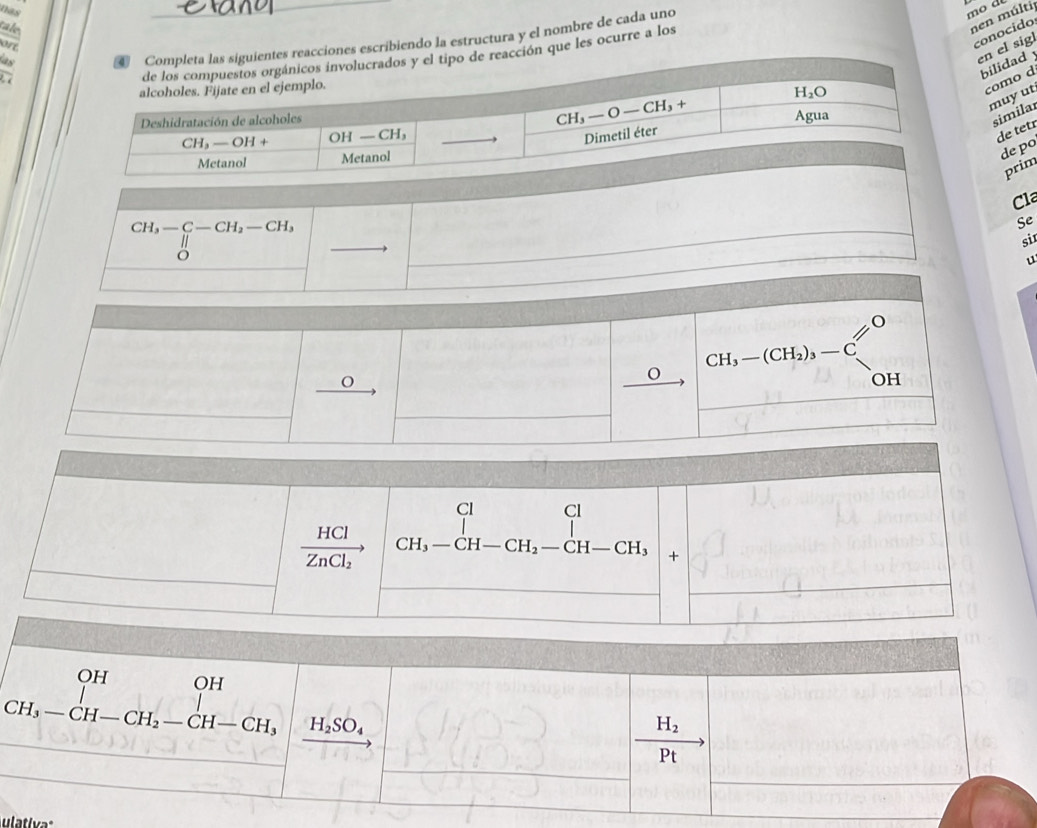 etanol
4 Completa las siguientes reacciones escribiendo la estructura y el nombre de cada uno
de los compuestos orgánicos involucrados y el tipo de reacción que les ocurre a los
alcoholes. Fíjate en el ejemplo.
Deshidratación de alcoholes
CH₃ — OH + OH — CH₃ ⟶ CH₃ — O — CH₃ + H₂O
Metanol Metanol Dimetil éter Agua
CH₃ — C — CH₂ — CH₃ ⟶
||
O
O
O O CH₃ — (CH₂)₃ — C
OH
Cl Cl
HCl CH₃ — CH — CH₂ — CH — CH₃ +
ZnCl₂
OH OH
CH₃ — CH — CH₂ — CH — CH₃ H₂SO₄ H₂
Pt
ulativa
mo de
nen múlti
conocido
en el sigl
bilidad y
como d
muy uti
similar
de tetr
de po
prim
Cla
Se
sir
u